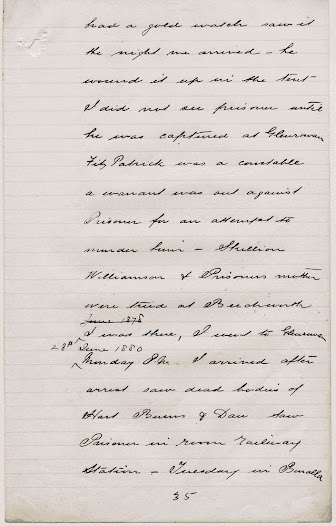 had a gold watch saw it
the night we arrived - he
wound it up in the tent
I did not see prisoner until
he was captured at Glenrowan
Fitz Patrick was a constable
a warrant was out against
Prisoner for an attempt to
murder him - Skillion
Williamson & Prisoners mother
were tried at Beechworth
June 1878
I was there, I went to Glenrowan
28th June 1880
Monday P.M. I arrived after
arrest saw dead bodies of
Hart Burns & Dan saw
Prisoner in room railway
Station - Tuesday in Benalla
35